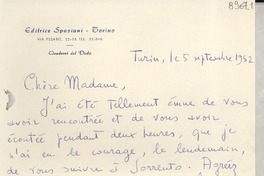 89671
Editrice Spaziani - Torino
Quaderni del Dado
Turin, le 5 septembre 1952
Chère Madame,
J'ai été tellement émue de vous
avoir rencontrée et de vous avoir
écoutée pendant deux heures, que je
n'ai eu le courage, le lendemain,
de vous suivre à Sorrento. Agréez